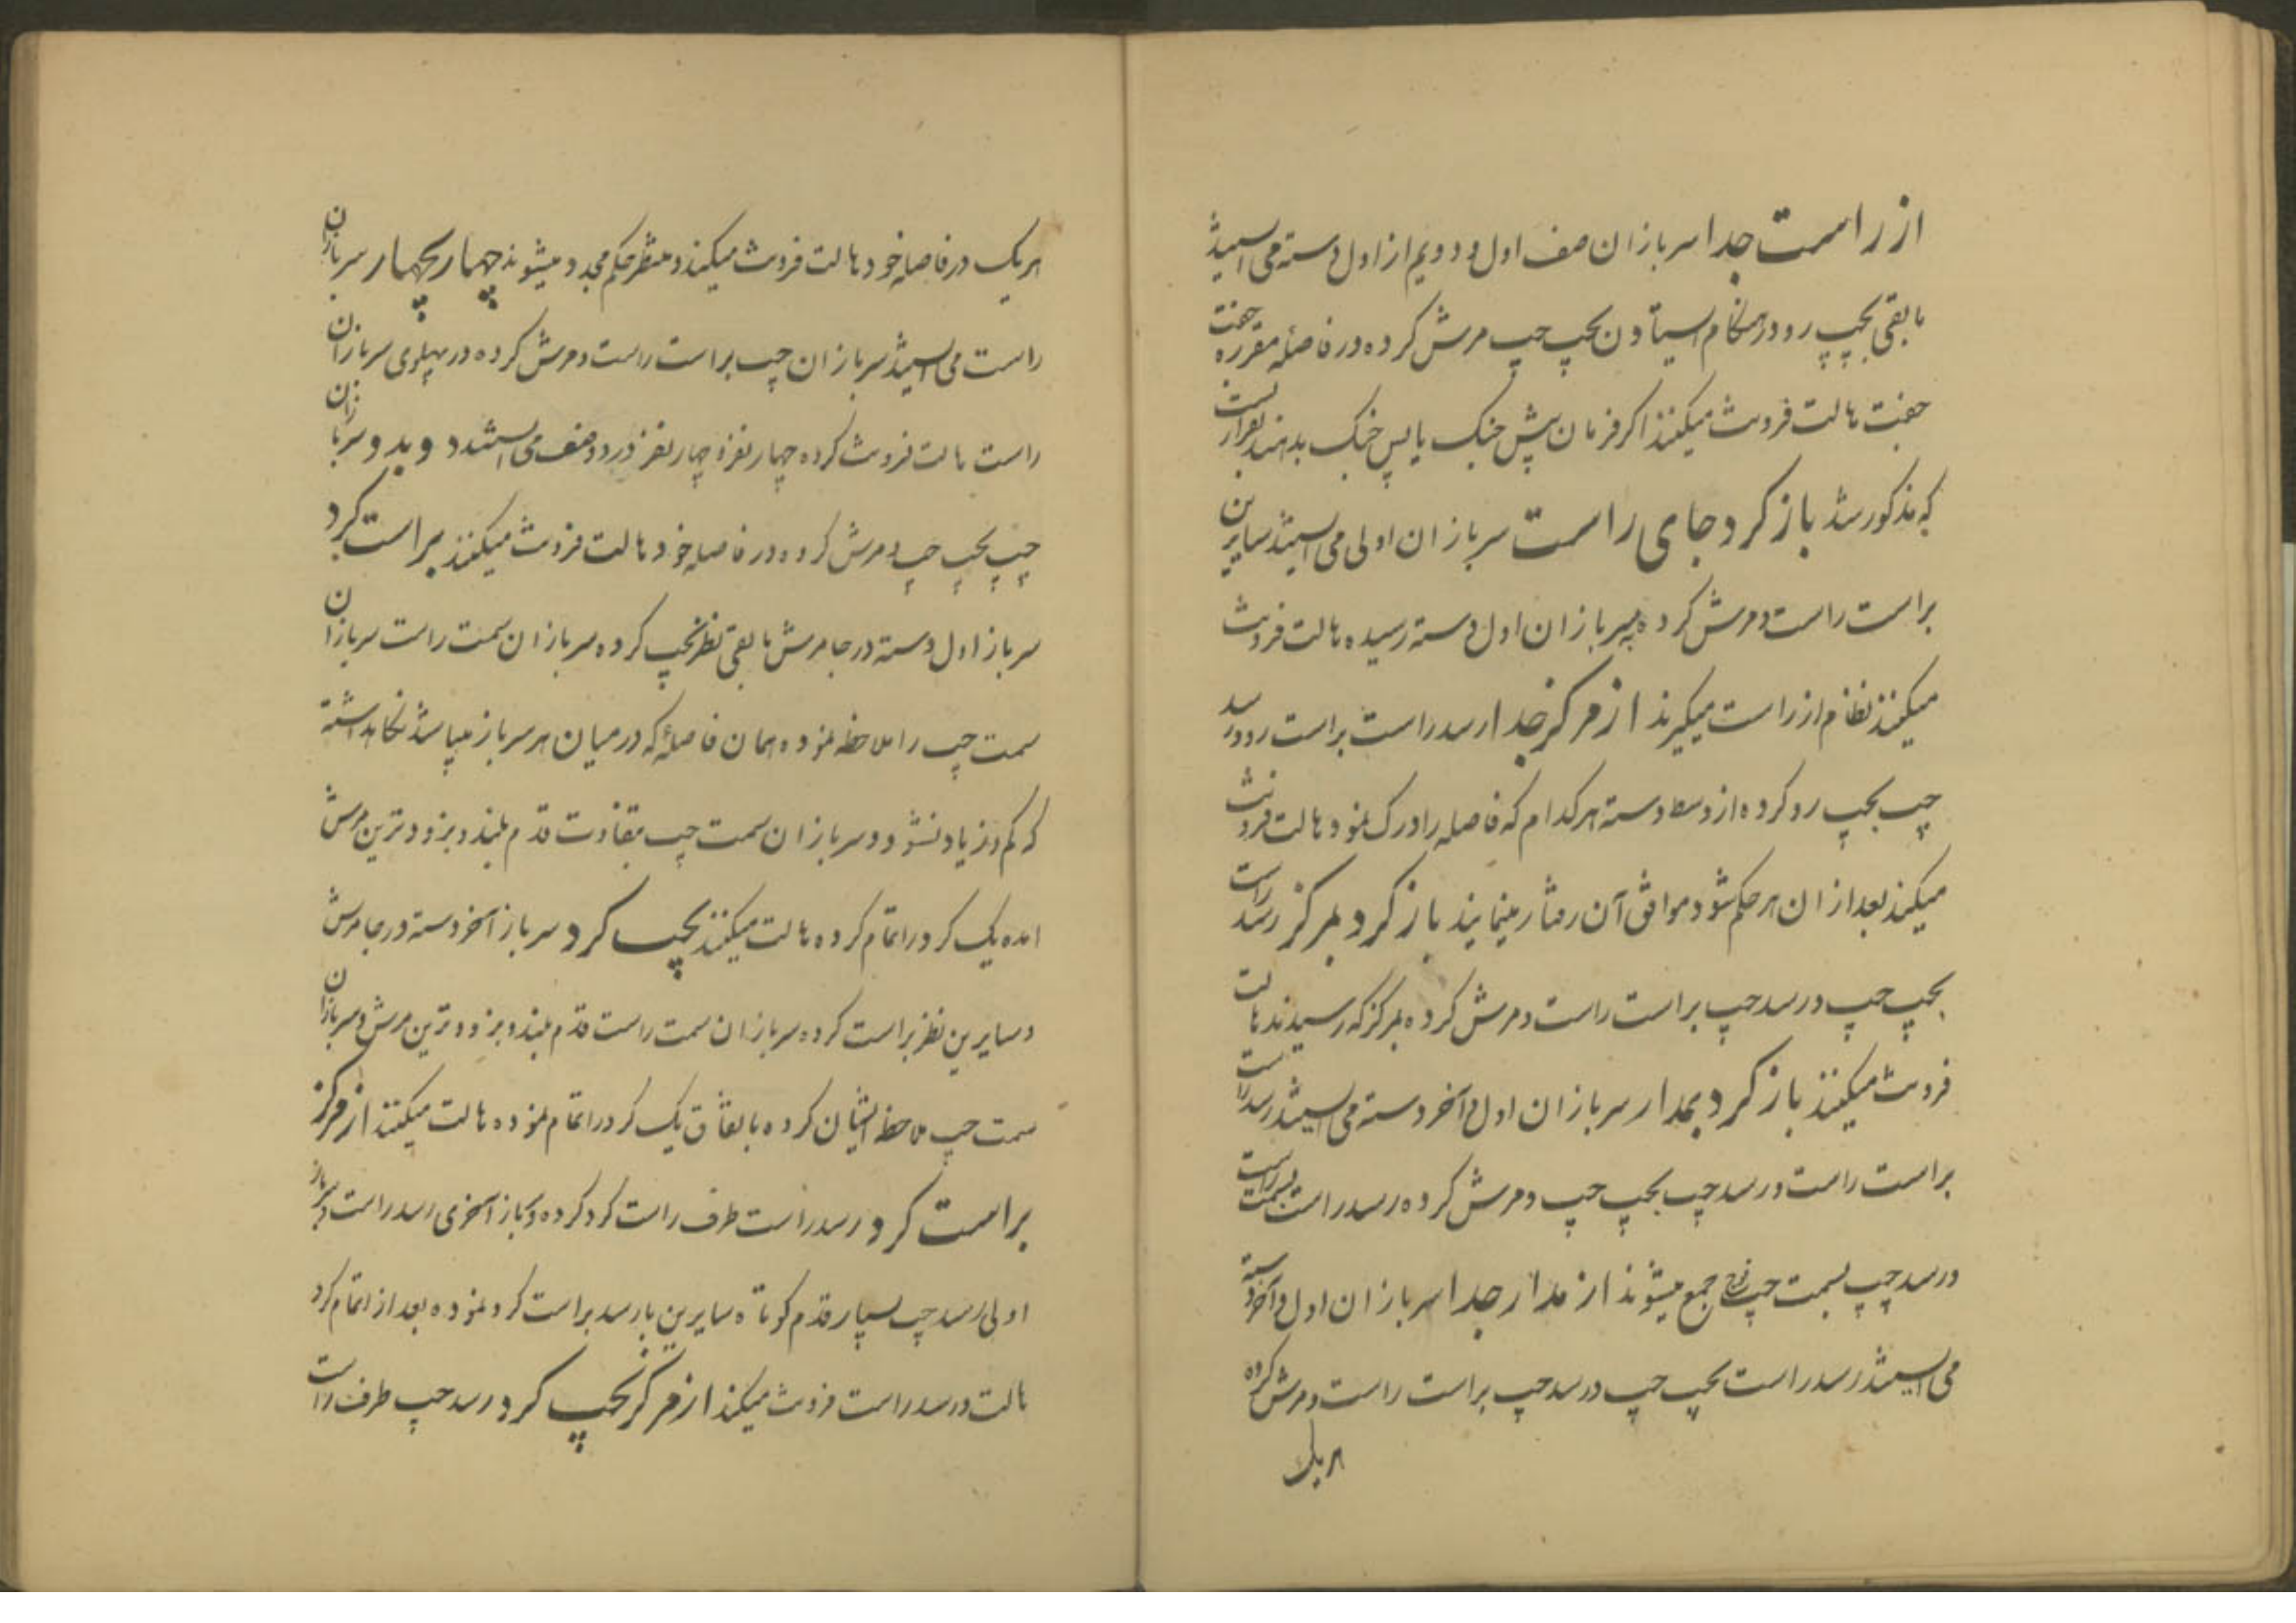 از راست جدا سربازان صف اول و دویم از اول دسته می ایستند
مابقی بچپ رو در هنکام ایستادن بچپ چپ مرش کرده در فاصله مقرره جفت
جفت هالت فرونت میکنند اکر فرمان پیش جنک یا پس جنک بدهند بقراریست
که مذکور شد باز کرد جای راست سربازان اولی می ایستند سایرین
براست راست و مرش کرده بسربازان اول دسته رسیده هالت فرونت
میکنند نظام از راست میکیرند از مرکز جدا رسد راست براست رو و رسد
چپ بچپ رو کرده از وسط دسته هر کدام که فاصله را درک نمود هالت فرونت
میکند بعد از ان هر حکم شود موافق آن رفتار مینمایند باز کرد بمرکز رسد راست
بچپ چپ و رسد چپ براست راست و مرش کرده بمرکز که رسیدند هالت
فرونت میکنند باز کرد بمدار سربازان اول و آخر دسته می ایستند رسد راست
براست راست و رسد چپ بچپ چپ و مرش کرده رسد راست بسمت راست
و رسد چپ بسمت چپ جمع میشوند از مدار جدا سربازان اول و آخر دسته
می ایستند رسد راست بچپ چپ و رسد چپ براست راست و مرش کرده
هریک
هریک در فاصله خود هالت فرونت میکنند و منتظر حکم مجدد میشوند چهار بچهار سربازان
راست می ایستند سربازان چپ براست راست و مرش کرده در پهلوی سربازان
راست هالت فرونت کرده چهار نفر و چهار نفر در دو صف می ایستند دو بدو سربازان
چپ بچپ چپ و مرش کرده در فاصله خود هالت فرونت میکنند براست کرد
سرباز اول دسته در جا مرش مابقی نظر بچپ کرده سربازان سمت راست سربازان
سمت چپ را ملاحظه نموده همان فاصلهٔ که در میان هر سرباز میباشد نکاهداشته
که کم و زیاد نشود و سربازان سمت چپ بتفاوت قدم بلند و بزودترین مرش
امده یک کرد را تمام کرده هالت میکنند بچپ کرد سرباز آخر دسته در جا مرش
و سایرین نظر براست کرده سربازان سمت راست قدم بلند و بزودترین مرش و سربازان
سمت چپ ملاحظه ایشان کرده باتفاق یک کرد را تمام نموده هالت میکنند از مرکز
براست کرد رسد راست طرف راست کرد کرده و سرباز آخری رسد راست و سرباز
اولی رسد چپ بسیار قدم کوتاه سایرین با رسد براست کرد نموده بعد از اتمام کرد
هالت و رسد راست فرونت میکند از مرکز بچپ کرد رسد چپ طرف راست